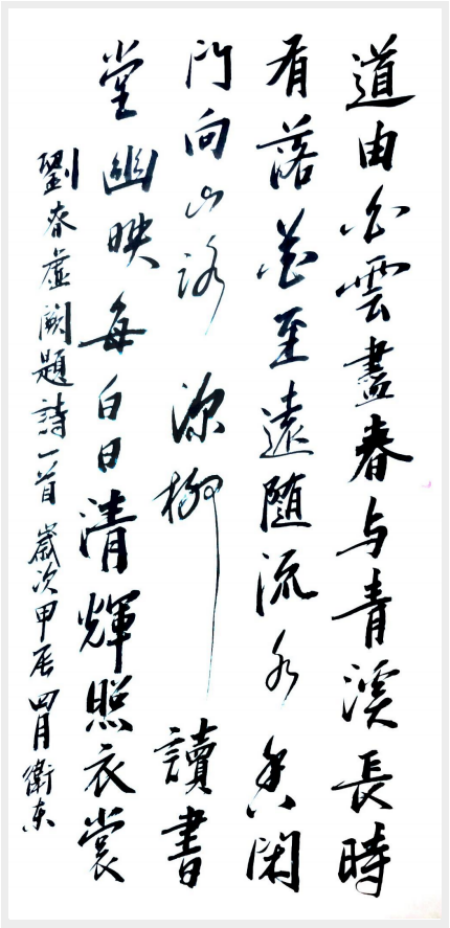 道由白雲盡春与青溪長時
有落花至遠隨流水香閑
門向山路深柳讀書
堂幽映每白日清輝照衣裳
劉眘虛闕題詩一首歲次甲辰四月衛东